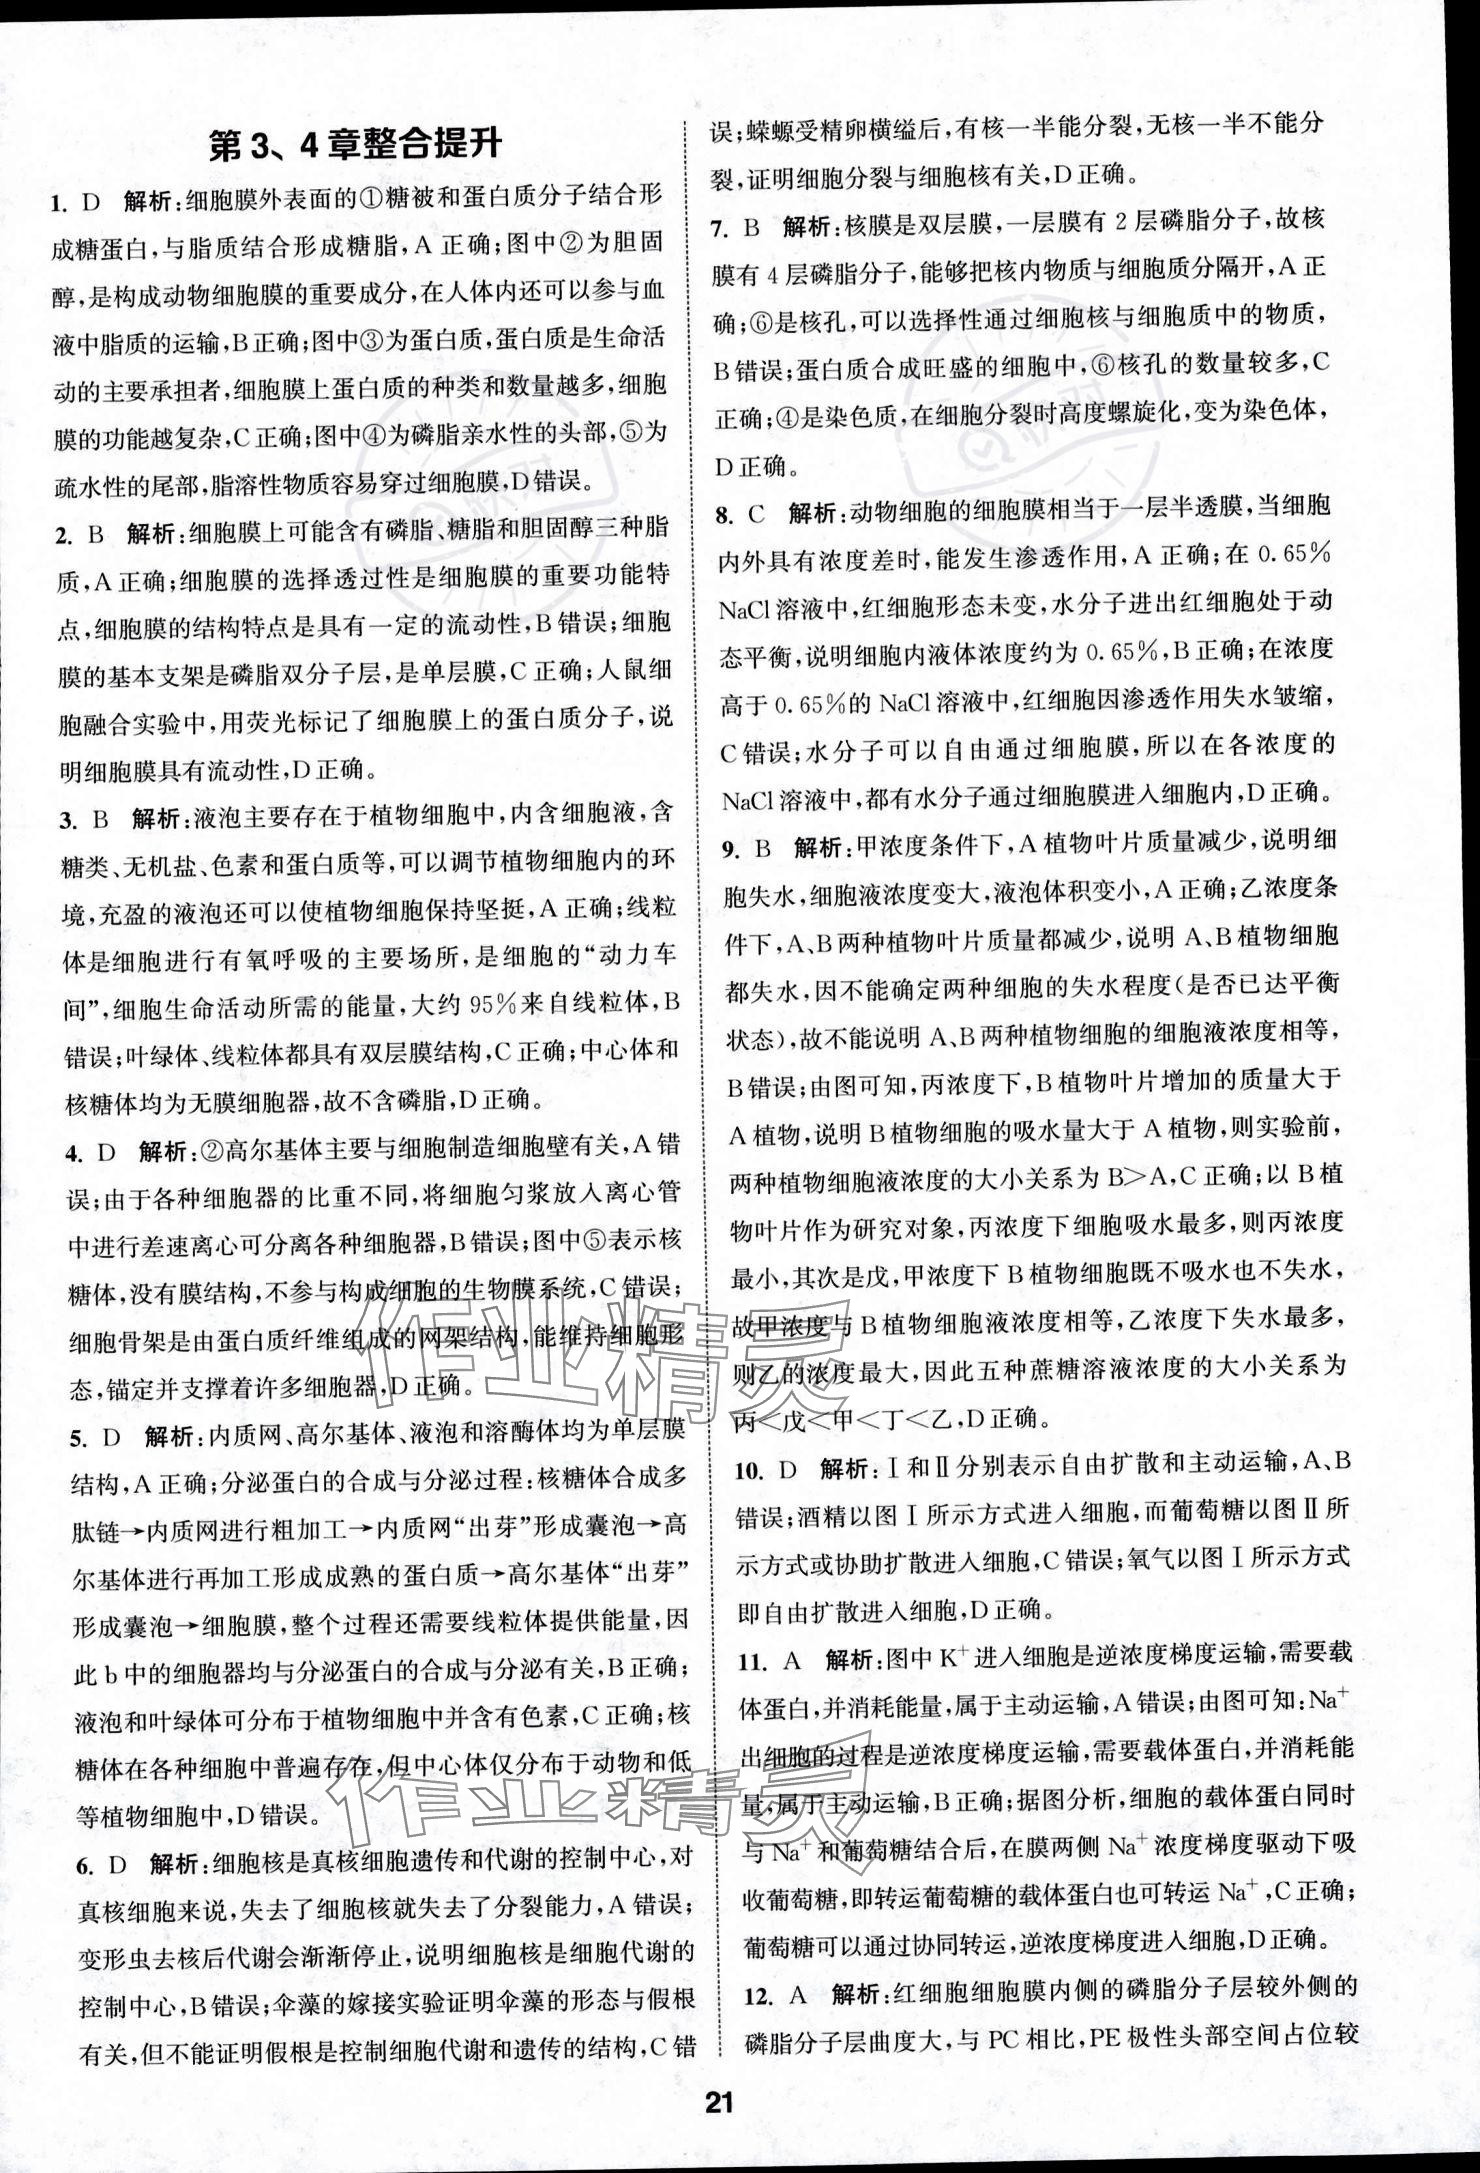 第3、4章整合提升
1. D 解析:细胞膜外表面的①糖被和蛋白质分子结合形
成糖蛋白,与脂质结合形成糖脂,A正确;图中②为胆固
醇,是构成动物细胞膜的重要成分,在人体内还可以参与血
液中脂质的运输,B正确;图中③为蛋白质,蛋白质是生命活
动的主要承担者,细胞膜上蛋白质的种类和数量越多,细胞
膜的功能越复杂,C正确;图中④为磷脂亲水性的头部,⑤为
疏水性的尾部,脂溶性物质容易穿过细胞膜,D错误。
2. B 解析:细胞膜上可能含有磷脂、糖脂和胆固醇三种脂
质,A正确;细胞膜的选择透过性是细胞膜的重要功能特
点,细胞膜的结构特点是具有一定的流动性,B错误;细胞
膜的基本支架是磷脂双分子层,是单层膜,C正确;人鼠细
胞融合实验中,用荧光标记了细胞膜上的蛋白质分子,说
明细胞膜具有流动性,D正确。
3. B 解析:液泡主要存在于植物细胞中,内含细胞液,含
糖类、无机盐、色素和蛋白质等,可以调节植物细胞内的环
境,充盈的液泡还可以使植物细胞保持坚挺,A正确;线粒
体是细胞进行有氧呼吸的主要场所,是细胞的“动力车
间”,细胞生命活动所需的能量,大约95%来自线粒体,B
错误;叶绿体、线粒体都具有双层膜结构,C正确;中心体和
核糖体均为无膜细胞器,故不含磷脂,D正确。
4. D 解析:②高尔基体主要与细胞制造细胞壁有关,A错
误;由于各种细胞器的比重不同,将细胞匀浆放入离心管
中进行差速离心可分离各种细胞器,B错误;图中⑤表示核
糖体,没有膜结构,不参与构成细胞的生物膜系统,C错误;
细胞骨架是由蛋白质纤维组成的网架结构,能维持细胞形
态,锚定并支撑着许多细胞器,D正确。
5. D 解析:内质网、高尔基体、液泡和溶酶体均为单层膜
结构,A正确;分泌蛋白的合成与分泌过程:核糖体合成多
肽链→内质网进行粗加工→内质网“出芽”形成囊泡→高
尔基体进行再加工形成成熟的蛋白质→高尔基体“出芽”
形成囊泡→细胞膜,整个过程还需要线粒体提供能量,因
此b中的细胞器均与分泌蛋白的合成与分泌有关,B正确;
液泡和叶绿体可分布于植物细胞中并含有色素,C正确;核
糖体在各种细胞中普遍存在,但中心体仅分布于动物和低
等植物细胞中,D错误。
6. D 解析:细胞核是真核细胞遗传和代谢的控制中心,对
真核细胞来说,失去了细胞核就失去了分裂能力,A错误;
变形虫去核后代谢会渐渐停止,说明细胞核是细胞代谢的
控制中心,B错误;伞藻的嫁接实验证明伞藻的形态与假根
有关,但不能证明假根是控制细胞代谢和遗传的结构,C错
误;蝾螈受精卵横缢后,有核一半能分裂,无核一半不能分
裂,证明细胞分裂与细胞核有关,D正确。
7. B 解析:核膜是双层膜,一层膜有2层磷脂分子,故核
膜有4层磷脂分子,能够把核内物质与细胞质分隔开,A正
确;⑥是核孔,可以选择性通过细胞核与细胞质中的物质,
B错误;蛋白质合成旺盛的细胞中,⑥核孔的数量较多,C
正确;④是染色质,在细胞分裂时高度螺旋化,变为染色体,
D正确。
8. C 解析:动物细胞的细胞膜相当于一层半透膜,当细胞
内外具有浓度差时,能发生渗透作用,A正确;在0.65%
NaCl溶液中,红细胞形态未变,水分子进出红细胞处于动
态平衡,说明细胞内液体浓度约为0.65%,B正确;在浓度
高于0.65%的NaCl溶液中,红细胞因渗透作用失水皱缩,
C错误;水分子可以自由通过细胞膜,所以在各浓度的
NaCl溶液中,都有水分子通过细胞膜进入细胞内,D正确。
9. B 解析:甲浓度条件下,A植物叶片质量减少,说明细
胞失水,细胞液浓度变大,液泡体积变小,A正确;乙浓度条
件下,A、B两种植物叶片质量都减少,说明A、B植物细胞
都失水,因不能确定两种细胞的失水程度(是否已达平衡
状态),故不能说明A、B两种植物细胞的细胞液浓度相等,
B错误;由图可知,丙浓度下,B植物叶片增加的质量大于
A植物,说明B植物细胞的吸水量大于A植物,则实验前,
两种植物细胞液浓度的大小关系为B>A,C正确;以B植
物叶片作为研究对象,丙浓度下细胞吸水最多,则丙浓度
最小,其次是戊,甲浓度下B植物细胞既不吸水也不失水,
故甲浓度与B植物细胞液浓度相等,乙浓度下失水最多,
则乙的浓度最大,因此五种蔗糖溶液浓度的大小关系为
丙<戊<甲<丁<乙,D正确。
10. D 解析:Ⅰ和Ⅱ分别表示自由扩散和主动运输,A、B
错误;酒精以图Ⅰ所示方式进入细胞,而葡萄糖以图Ⅱ所
示方式或协助扩散进入细胞,C错误;氧气以图Ⅰ所示方式
即自由扩散进入细胞,D正确。
11. A 解析:图中K⁺进入细胞是逆浓度梯度运输,需要载
体蛋白,并消耗能量,属于主动运输,A错误;由图可知:Na⁺
出细胞的过程是逆浓度梯度运输,需要载体蛋白,并消耗能
量,属于主动运输,B正确;据图分析,细胞的载体蛋白同时
与Na⁺和葡萄糖结合后,在膜两侧Na⁺浓度梯度驱动下吸
收葡萄糖,即转运葡萄糖的载体蛋白也可转运Na⁺,C正确;
葡萄糖可以通过协同转运,逆浓度梯度进入细胞,D正确。
12. A 解析:红细胞细胞膜内侧的磷脂分子层较外侧的
磷脂分子层曲度大,与PC相比,PE极性头部空间占位较
21
作业精灵
作业精灵